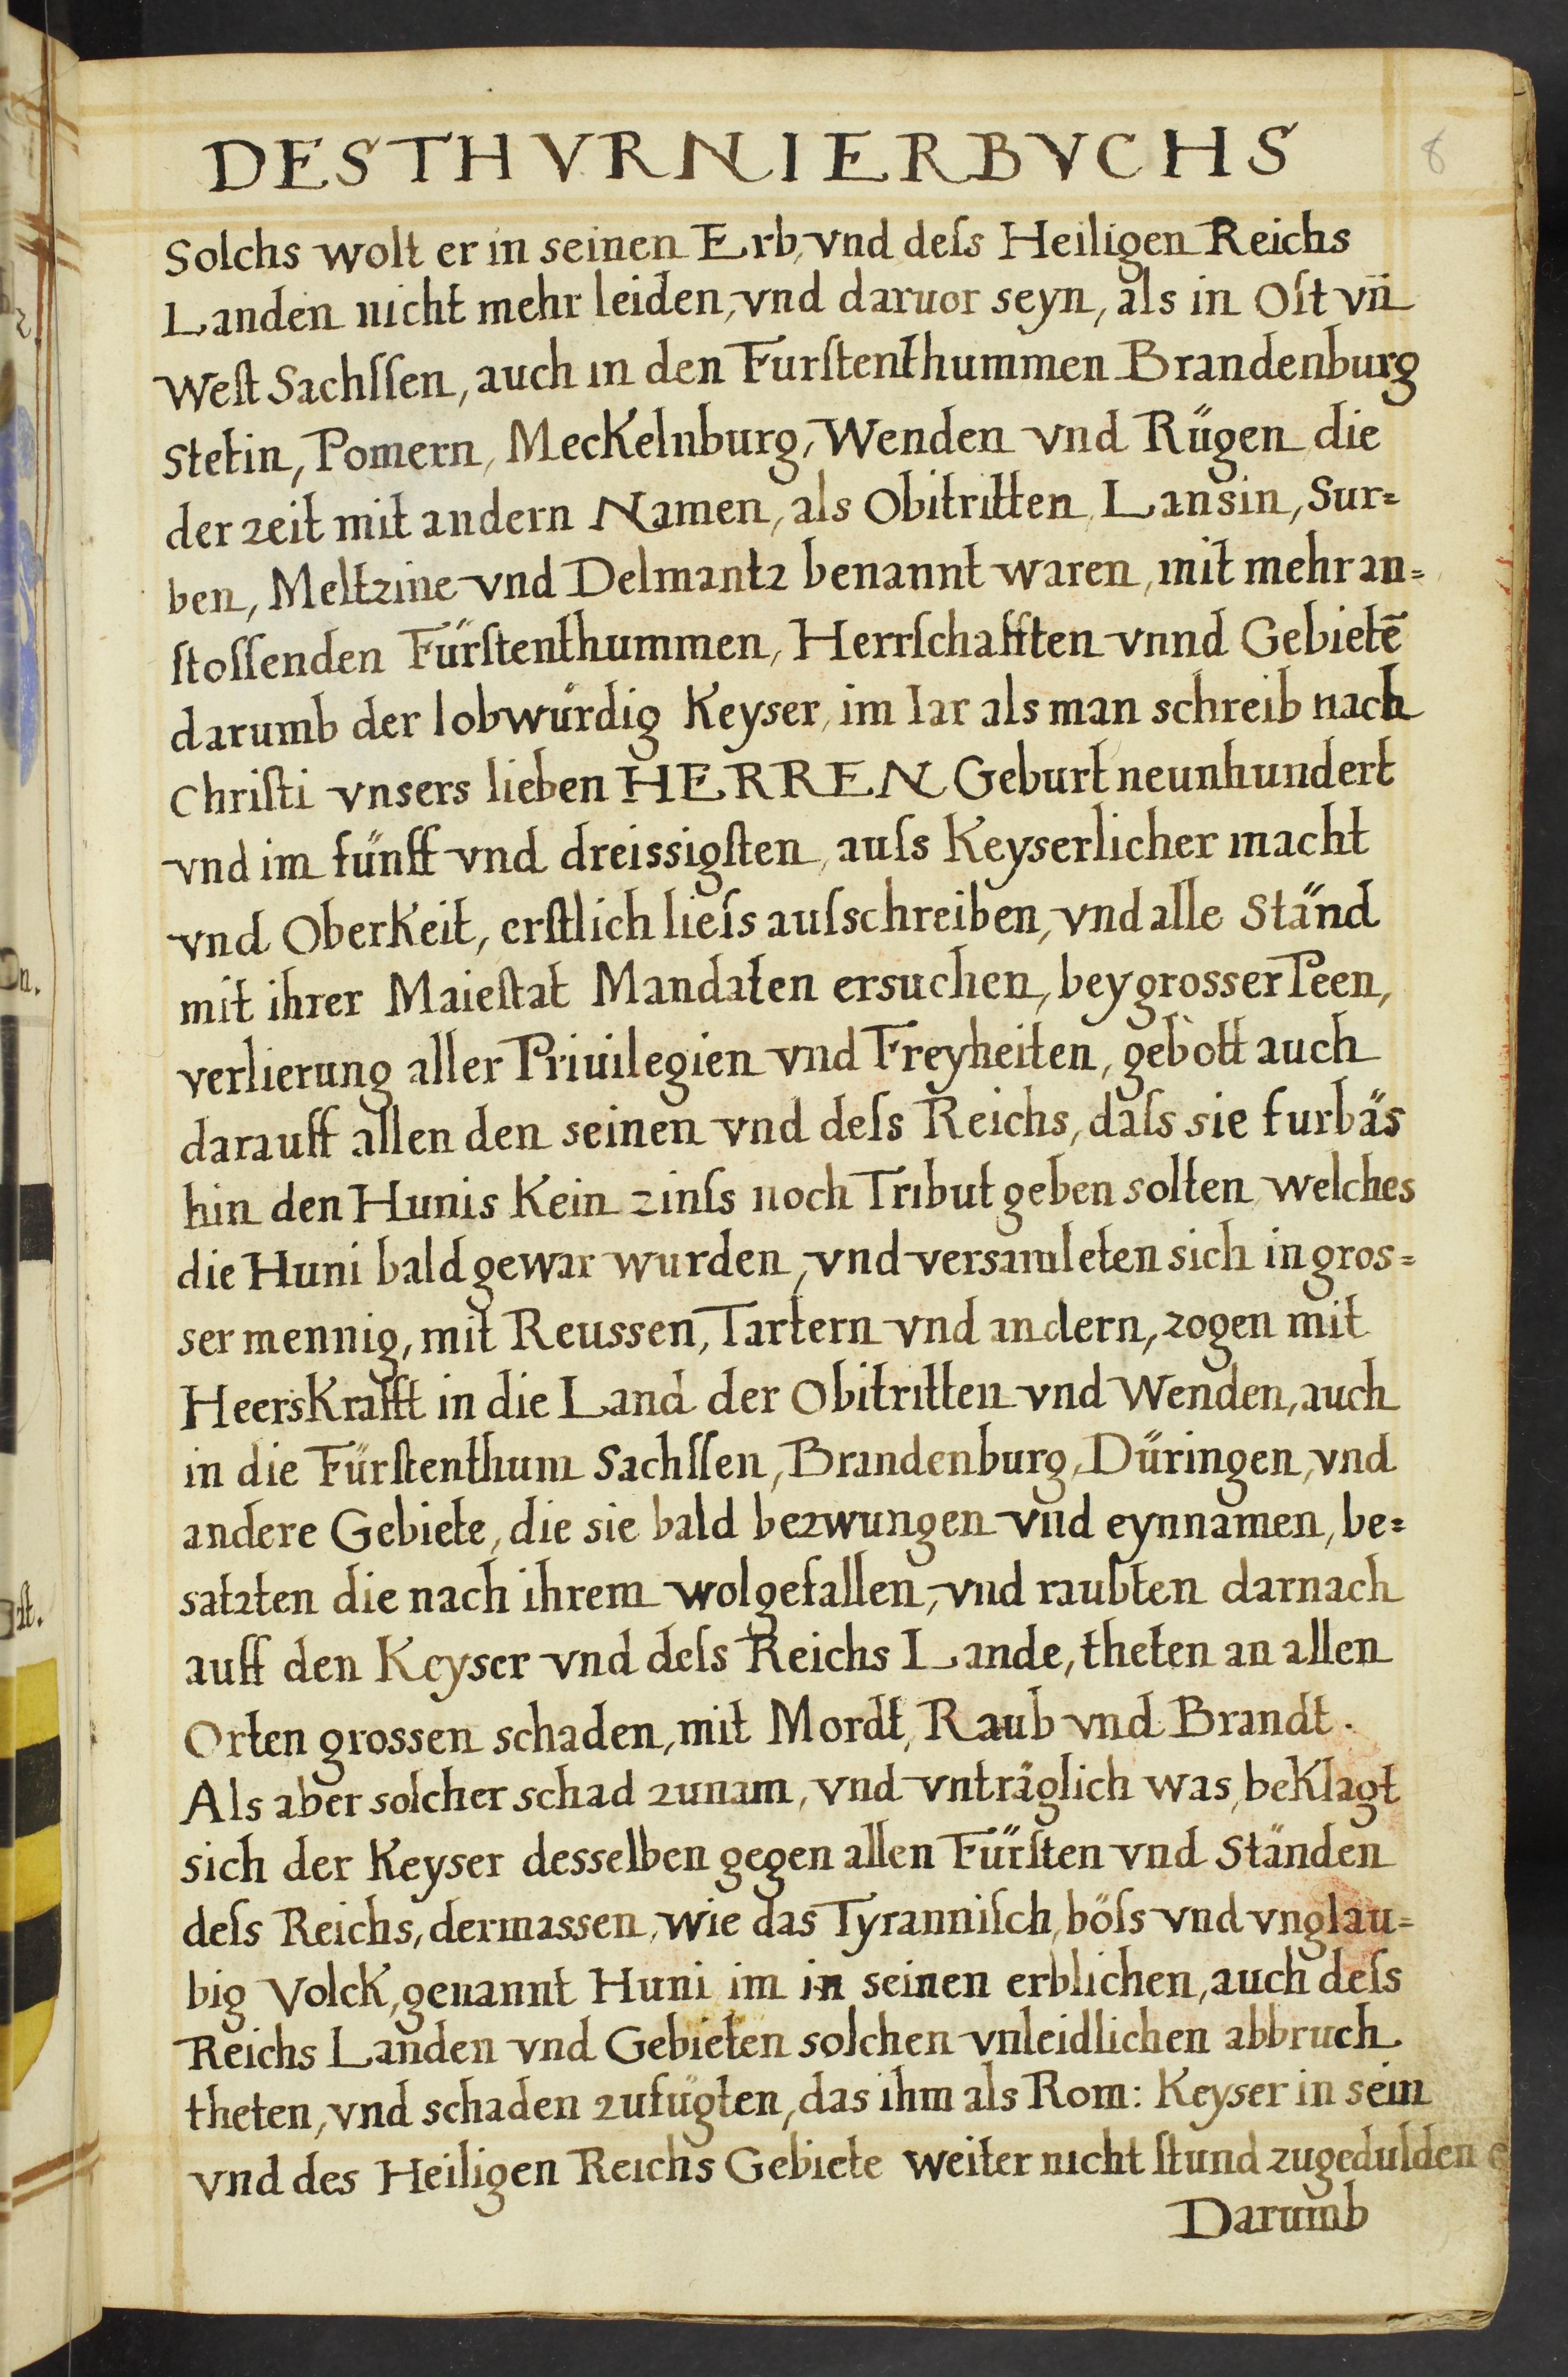 DES THVRNIERBVCHS
8
Solchs wolt er in seinen Erb, vnd deſs Heiligen Reichs
Landen nicht mehr leiden, vnd daruor seyn, als in Oſt vn̄
Weſt Sachſſen, auch in den Furſtenthummen Brandenburg
Stetin, Pomern, Meckelnburg, Wenden vnd Rügen die
der zeit mit andern Namen, als Obitritten, Lansin, Sur=
ben, Meltzine vnd Delmantz benannt waren, mit mehr an=
ſtoſſenden Fürſtenthummen, Herrſchafften vnnd Gebietē
darumb der lobwürdig Keyser, im Iar als man schreib nach
Chriſti vnsers lieben HERREN Geburt neunhundert
vnd im fünff vnd dreissigſten, auſs Keyserlicher macht
vnd Oberkeit, erſtlich lieſs auſschreiben, vnd alle Ständ
mit ihrer Maieſtat Mandaten ersuchen, bey grosser Peen,
verlierung aller Priuilegien vnd Freyheiten, gebott auch
darauff allen den seinen vnd deſs Reichs, daſs sie furbäs
hin den Hunis Kein zinſs noch Tribut geben solten welches
die Huni bald gewar wurden, vnd versamleten sich in gros=
ser mennig, mit Reussen, Tartern vnd andern, zogen mit
Heerskrafft in die Land der Obitritten vnd Wenden, auch
in die Fürſtenthum Sachſſen, Brandenburg, Düringen, vnd
andere Gebiete, die sie bald bezwungen vnd eynnamen, be=
satzten die nach ihrem wolgefallen, vnd raubten darnach
auff den Keyser vnd deſs Reichs Lande, theten an allen
Orten grossen schaden, mit Mordt, Raub vnd Brandt.
Als aber solcher schad zunam, vnd vnträglich was, beklagt
sich der Keyser desselben gegen allen Fürſten vnd Ständen
deſs Reichs, dermassen, wie das Tyranniſch, böſs vnd vnglau=
big Volck, genannt Huni im in seinen erblichen, auch deſs
Reichs Landen vnd Gebieten solchen vnleidlichen abbruch
theten, vnd schaden zufügten, das ihm als Rom: Keyser in sein
vnd des Heiligen Reichs Gebiete weiter nicht ſtund zugedulden
Darumb